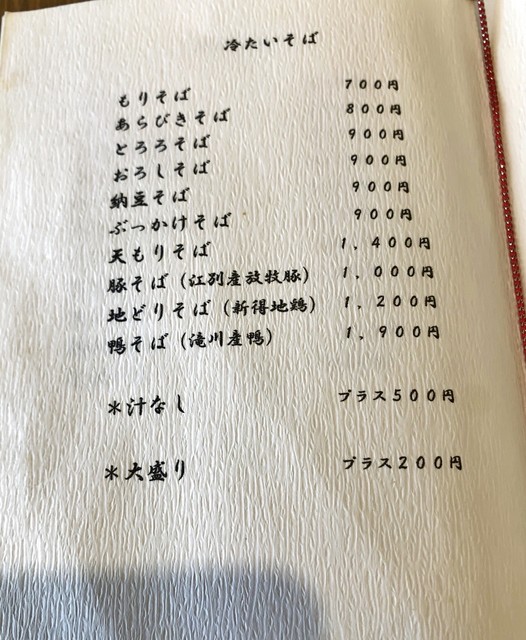 冷たいそば
もりそば 700円
あらびきそば 800円
とろろそば 900円
おろしそば 900円
納豆そば 900円
ぶっかけそば 900円
天もりそば 1,400円
豚そば(江別産放牧豚) 1,000円
地どりそば(新得地鶏) 1,200円
鴨そば(滝川産鴨) 1,900円
*汁なし プラス500円
*大盛り プラス200円